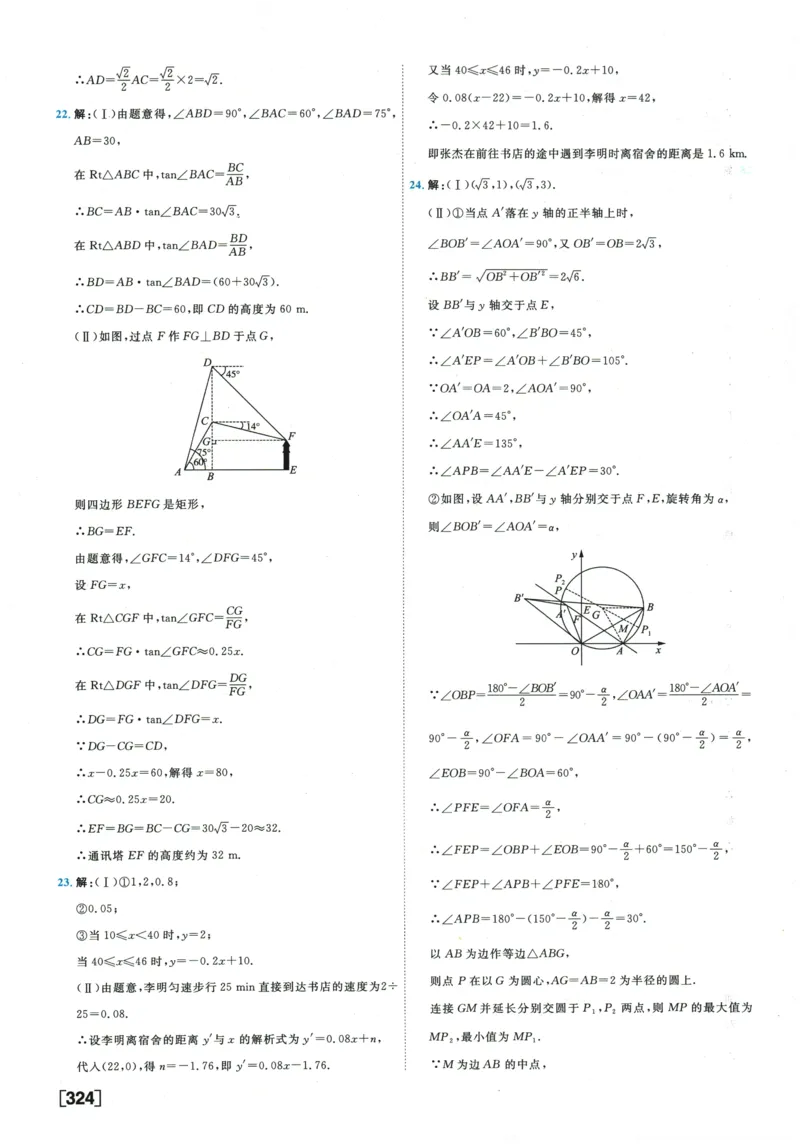 ∴AD=√2/2 AC=√2/2×2=√2.
22.解:(Ⅰ)由题意得,∠ABD=90°,∠BAC=60°,∠BAD=75°,
AB=30,
在 Rt△ABC 中,tan∠BAC=BC/AB,
∴BC=AB·tan∠BAC=30√3,
在 Rt△ABD 中,tan∠BAD=BD/AB,
∴BD=AB·tan∠BAD=(60+30√3).
∴CD=BD-BC=60,即 CD 的高度为 60 m.
(Ⅱ)如图,过点 F 作 FG⊥BD 于点 G,
D
45°
C
14°
G
F
75°
60°
A
B
E
则四边形 BEFG 是矩形,
∴BG=EF.
由题意得,∠GFC=14°,∠DFG=45°,
设 FG=x,
在 Rt△CGF 中,tan∠GFC=CG/FG,
∴CG=FG·tan∠GFC≈0.25x.
在 Rt△DGF 中,tan∠DFG=DG/FG,
∴DG=FG·tan∠DFG=x.
∵DG-CG=CD,
∴x-0.25x=60,解得 x=80,
∴CG≈0.25x=20.
∴EF=BG=BC-CG=30√3-20≈32.
∴通讯塔 EF 的高度约为 32 m.
23.解:(Ⅰ)①1,2,0.8;
②0.05;
③当 10≤x<40 时,y=2;
当 40≤x≤46 时,y=-0.2x+10.
(Ⅱ)由题意,李明匀速步行 25 min 直接到达书店的速度为2÷
25=0.08.
∴设李明离宿舍的距离 y′与 x 的解析式为 y′=0.08x+n,
代入(22,0),得 n=-1.76,即 y′=0.08x-1.76.
[324]
又当 40≤x≤46 时,y=-0.2x+10,
令 0.08(x-22)=-0.2x+10,解得 x=42,
∴-0.2×42+10=1.6.
即张杰在前往书店的途中遇到李明时离宿舍的距离是 1.6 km.
24.解:(Ⅰ)(√3,1),(√3,3).
(Ⅱ)①当点 A′落在 y 轴的正半轴上时,
∠BOB′=∠AOA′=90°,又 OB′=OB=2√3,
∴BB′=√(OB²+OB′²)=2√6.
设 BB′与 y 轴交于点 E,
∵∠A′OB=60°,∠B′BO=45°,
∴∠A′EP=∠A′OB+∠B′BO=105°.
∵OA′=OA=2,∠AOA′=90°,
∴∠OA′A=45°,
∴∠AA′E=135°,
∴∠APB=∠AA′E-∠A′EP=30°.
②如图,设 AA′,BB′与 y 轴分别交于点 F,E,旋转角为 α,
则∠BOB′=∠AOA′=α,
y
P₂
P
B′
A′
E
F
G
B
M
P₁
O
A
x
∵∠OBP=(180°-∠BOB′)/2=90°-α/2,∠OAA′=(180°-∠AOA′)/2=
90°-α/2,∠OFA=90°-∠OAA′=90°-(90°-α/2)=α/2,
∠EOB=90°-∠BOA=60°,
∴∠PFE=∠OFA=α/2,
∴∠FEP=∠OBP+∠EOB=90°-α/2+60°=150°-α/2,
∵∠FEP+∠APB+∠PFE=180°,
∴∠APB=180°-(150°-α/2)-α/2=30°.
以 AB 为边作等边△ABG,
则点 P 在以 G 为圆心,AG=AB=2 为半径的圆上.
连接 GM 并延长分别交圆于 P₁,P₂ 两点,则 MP 的最大值为
MP₂,最小值为 MP₁.
∵M 为边 AB 的中点,